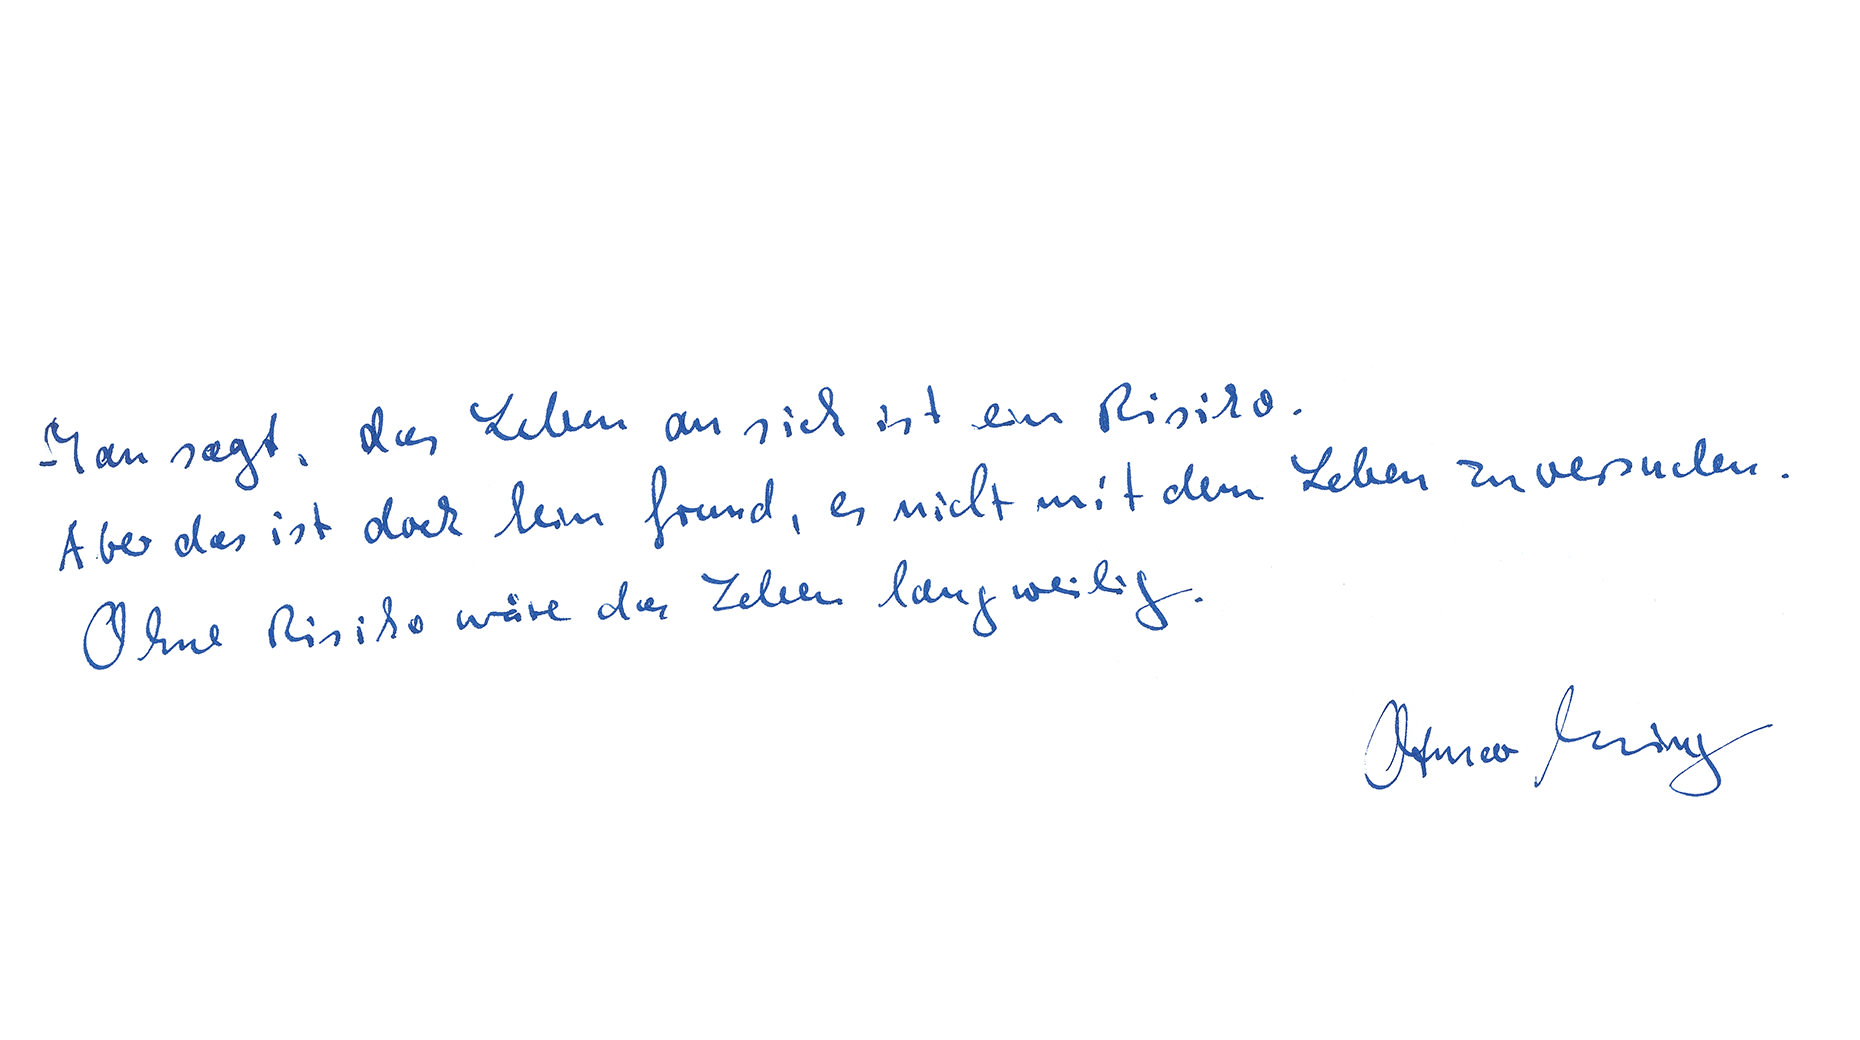 Man sagt, das Leben an sich ist ein Risiko.
Aber das ist doch kein Grund, es nicht mit dem Leben zu versuchen.
Ohne Risiko wäre das Leben langweilig.